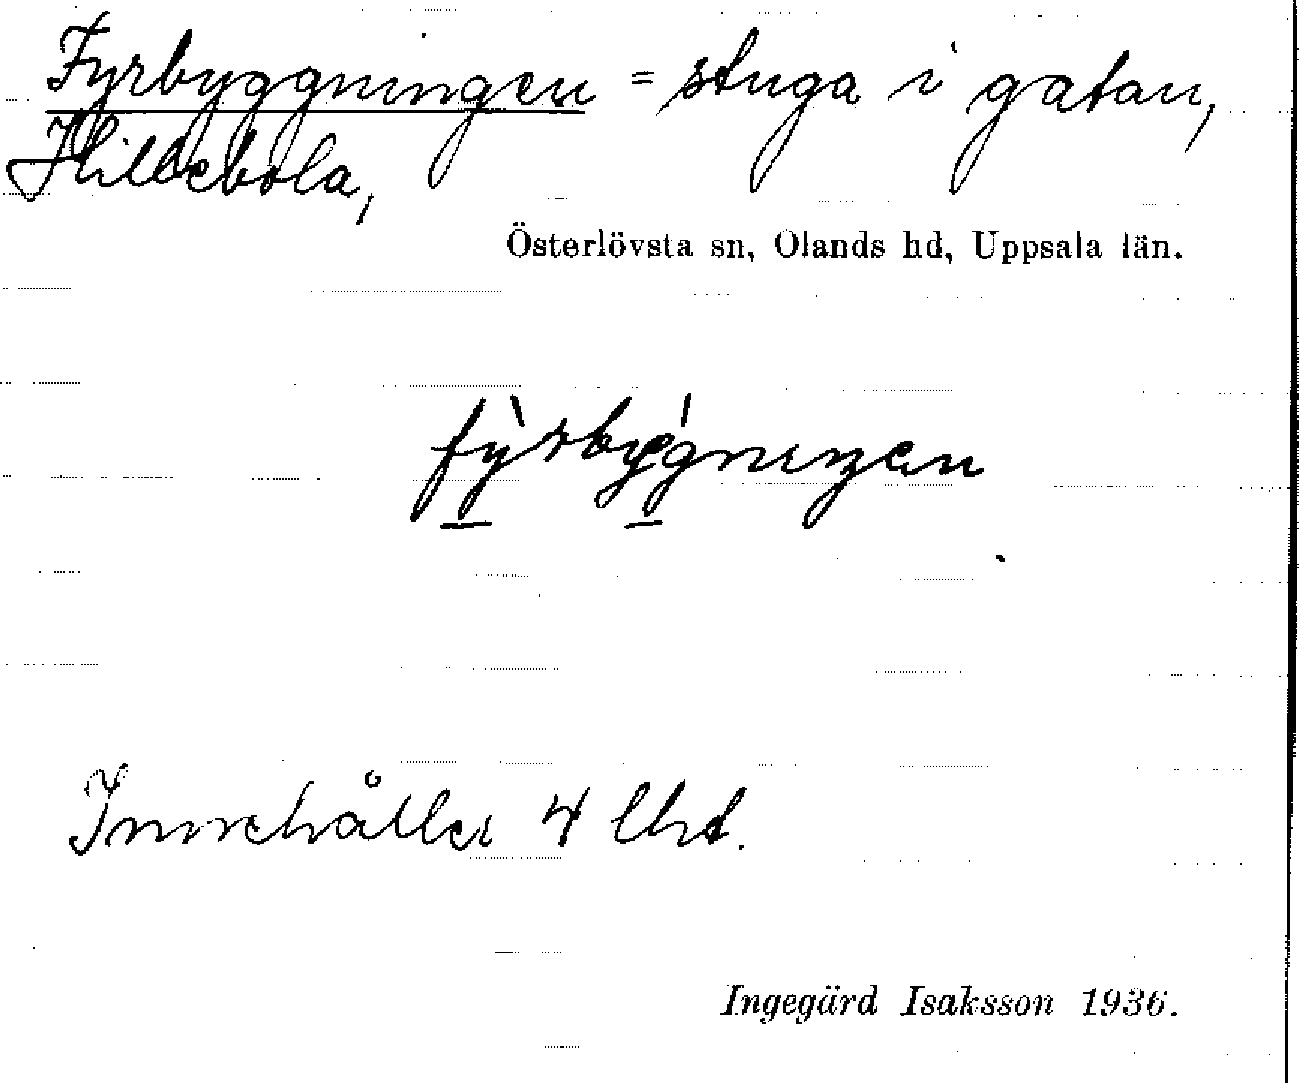 Fyrbyggningen = stuga i gatan,
Hillebola,
Österlövsta sn, Olands hd, Uppsala län.
fỳrbýgnıŋen
Innehåller 4 lht.
Ingegärd Isaksson 1936.